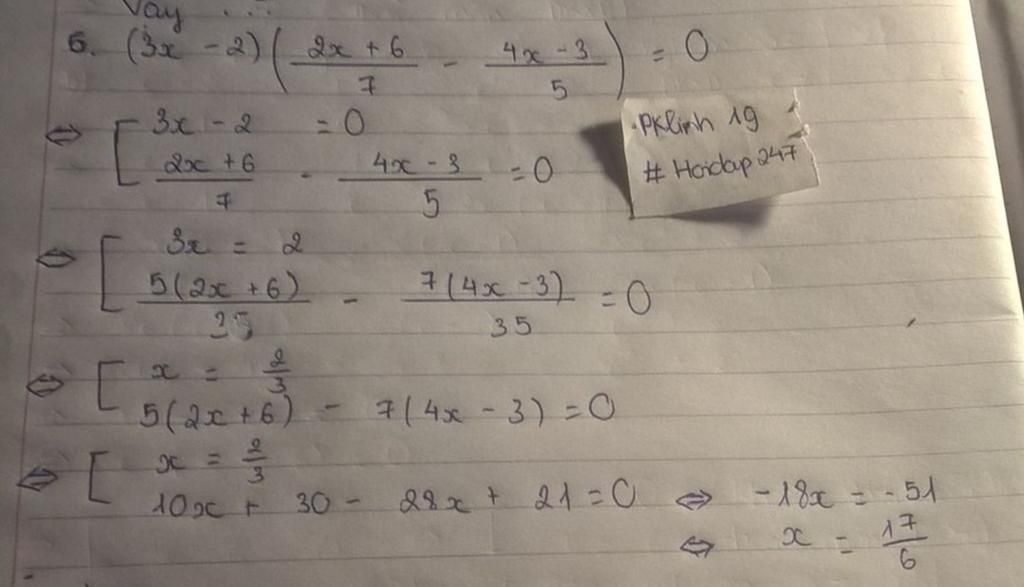 Vay ...
6. (3x - 2)(\frac{2x + 6}{7} - \frac{4x - 3}{5}) = 0
⇔ [ 3x - 2 = 0
\frac{2x + 6}{7} - \frac{4x - 3}{5} = 0
.PKlinh 19
# Hoidap247
⇔ [ 3x = 2
\frac{5(2x + 6)}{35} - \frac{7(4x - 3)}{35} = 0
⇔ [ x = \frac{2}{3}
5(2x + 6) - 7(4x - 3) = 0
⇔ [ x = \frac{2}{3}
10x + 30 - 28x + 21 = 0 ⇔ -18x = -51
⇔ x = \frac{17}{6}